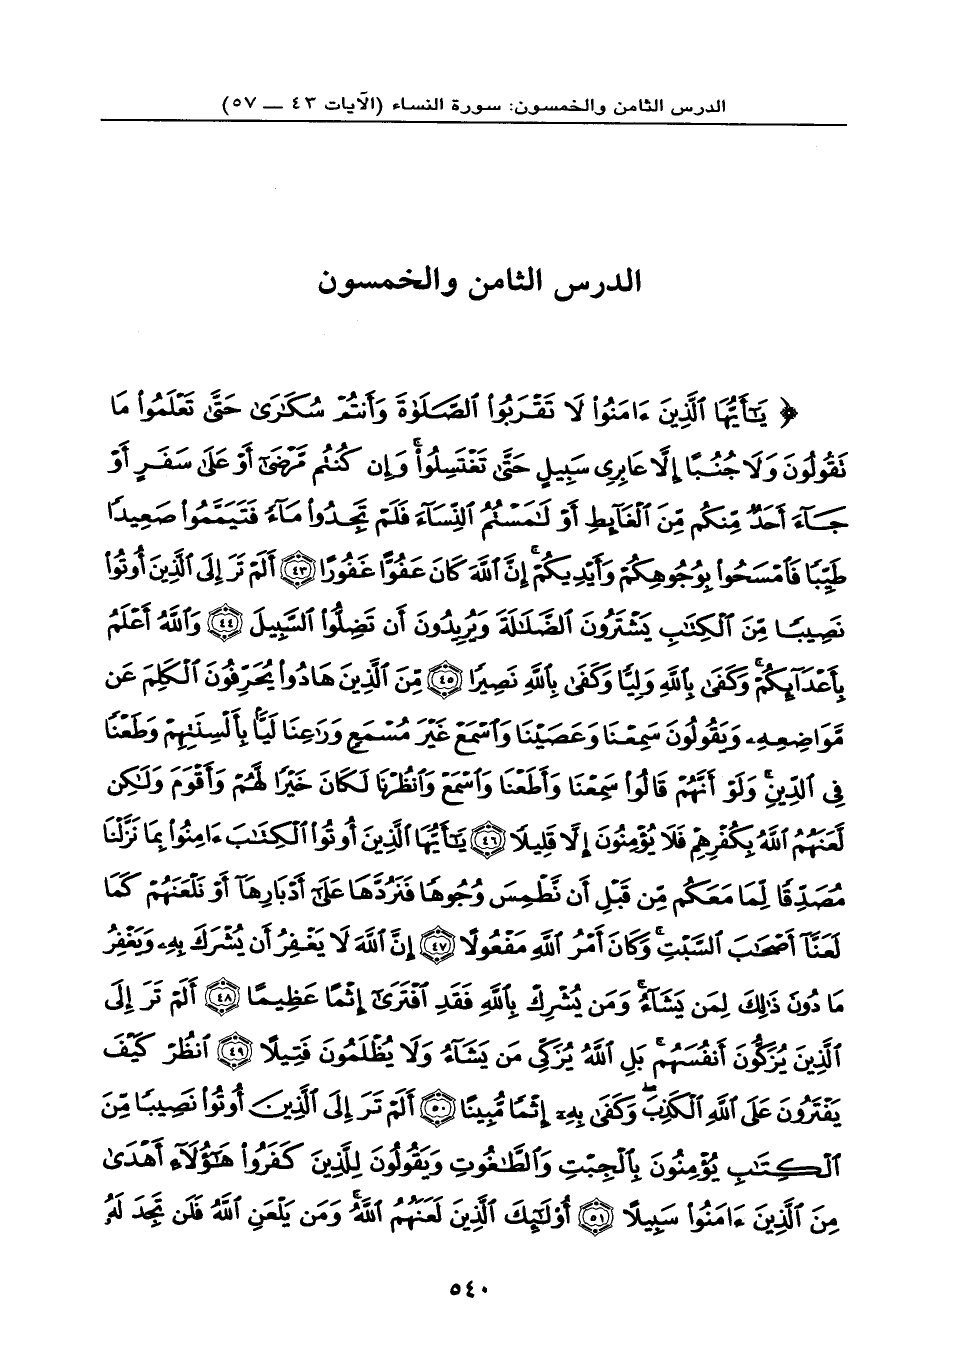 الدرس الثامن والخمسون: سورة النساء (الآيات ٤٣ — ٥٧)
الدرس الثامن والخمسون
﴿ يَٰٓأَيُّهَا ٱلَّذِينَ ءَامَنُوا۟ لَا تَقْرَبُوا۟ ٱلصَّلَوٰةَ وَأَنتُمْ سُكَٰرَىٰ حَتَّىٰ تَعْلَمُوا۟ مَا
تَقُولُونَ وَلَا جُنُبًا إِلَّا عَابِرِى سَبِيلٍ حَتَّىٰ تَغْتَسِلُوا۟ ۚ وَإِن كُنتُم مَّرْضَىٰٓ أَوْ عَلَىٰ سَفَرٍ أَوْ
جَآءَ أَحَدٌ مِّنكُم مِّنَ ٱلْغَآئِطِ أَوْ لَٰمَسْتُمُ ٱلنِّسَآءَ فَلَمْ تَجِدُوا۟ مَآءً فَتَيَمَّمُوا۟ صَعِيدًا
طَيِّبًا فَٱمْسَحُوا۟ بِوُجُوهِكُمْ وَأَيْدِيكُمْ ۗ إِنَّ ٱللَّهَ كَانَ عَفُوًّا غَفُورًا ٤٣ أَلَمْ تَرَ إِلَى ٱلَّذِينَ أُوتُوا۟
نَصِيبًا مِّنَ ٱلْكِتَٰبِ يَشْتَرُونَ ٱلضَّلَٰلَةَ وَيُرِيدُونَ أَن تَضِلُّوا۟ ٱلسَّبِيلَ ٤٤ وَٱللَّهُ أَعْلَمُ
بِأَعْدَآئِكُمْ ۚ وَكَفَىٰ بِٱللَّهِ وَلِيًّا وَكَفَىٰ بِٱللَّهِ نَصِيرًا ٤٥ مِّنَ ٱلَّذِينَ هَادُوا۟ يُحَرِّفُونَ ٱلْكَلِمَ عَن
مَّوَاضِعِهِۦ وَيَقُولُونَ سَمِعْنَا وَعَصَيْنَا وَٱسْمَعْ غَيْرَ مُسْمَعٍ وَرَٰعِنَا لَيًّۢا بِأَلْسِنَتِهِمْ وَطَعْنًا
فِى ٱلدِّينِ ۚ وَلَوْ أَنَّهُمْ قَالُوا۟ سَمِعْنَا وَأَطَعْنَا وَٱسْمَعْ وَٱنظُرْنَا لَكَانَ خَيْرًا لَّهُمْ وَأَقْوَمَ وَلَٰكِن
لَّعَنَهُمُ ٱللَّهُ بِكُفْرِهِمْ فَلَا يُؤْمِنُونَ إِلَّا قَلِيلًا ٤٦ يَٰٓأَيُّهَا ٱلَّذِينَ أُوتُوا۟ ٱلْكِتَٰبَ ءَامِنُوا۟ بِمَا نَزَّلْنَا
مُصَدِّقًا لِّمَا مَعَكُم مِّن قَبْلِ أَن نَّطْمِسَ وُجُوهًا فَنَرُدَّهَا عَلَىٰٓ أَدْبَارِهَآ أَوْ نَلْعَنَهُمْ كَمَا
لَعَنَّآ أَصْحَٰبَ ٱلسَّبْتِ ۚ وَكَانَ أَمْرُ ٱللَّهِ مَفْعُولًا ٤٧ إِنَّ ٱللَّهَ لَا يَغْفِرُ أَن يُشْرَكَ بِهِۦ وَيَغْفِرُ
مَا دُونَ ذَٰلِكَ لِمَن يَشَآءُ ۚ وَمَن يُشْرِكْ بِٱللَّهِ فَقَدِ ٱفْتَرَىٰٓ إِثْمًا عَظِيمًا ٤٨ أَلَمْ تَرَ إِلَى
ٱلَّذِينَ يُزَكُّونَ أَنفُسَهُم ۚ بَلِ ٱللَّهُ يُزَكِّى مَن يَشَآءُ وَلَا يُظْلَمُونَ فَتِيلًا ٤٩ ٱنظُرْ كَيْفَ
يَفْتَرُونَ عَلَى ٱللَّهِ ٱلْكَذِبَ ۖ وَكَفَىٰ بِهِۦٓ إِثْمًا مُّبِينًا ٥٠ أَلَمْ تَرَ إِلَى ٱلَّذِينَ أُوتُوا۟ نَصِيبًا مِّنَ
ٱلْكِتَٰبِ يُؤْمِنُونَ بِٱلْجِبْتِ وَٱلطَّٰغُوتِ وَيَقُولُونَ لِلَّذِينَ كَفَرُوا۟ هَٰٓؤُلَآءِ أَهْدَىٰ
مِنَ ٱلَّذِينَ ءَامَنُوا۟ سَبِيلًا ٥١ أُو۟لَٰٓئِكَ ٱلَّذِينَ لَعَنَهُمُ ٱللَّهُ ۖ وَمَن يَلْعَنِ ٱللَّهُ فَلَن تَجِدَ لَهُۥ
٥٤٠